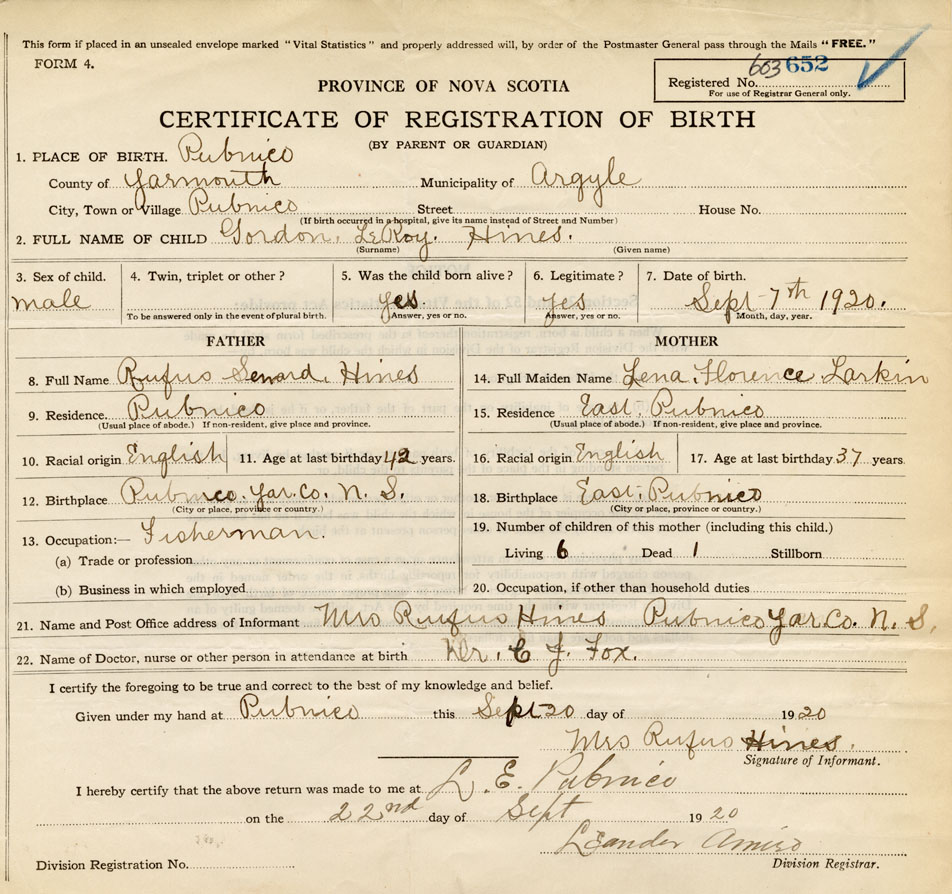 This form if placed in an unsealed envelope marked "Vital Statistics" and properly addressed will, by order of the Postmaster General pass through the Mails "FREE."
FORM 4.
603 652
Registered No.
For use of Registrar General only.
PROVINCE OF NOVA SCOTIA
CERTIFICATE OF REGISTRATION OF BIRTH
(BY PARENT OR GUARDIAN)
1. PLACE OF BIRTH. Pubnico
County of Yarmouth Municipality of Argyle
City, Town or Village Pubnico Street House No.
(If birth occurred in a hospital, give its name instead of Street and Number)
2. FULL NAME OF CHILD Gordon. LeRoy. Hines.
(Surname) (Given name)
3. Sex of child. 4. Twin, triplet or other? 5. Was the child born alive? 6. Legitimate? 7. Date of birth.
male yes yes Sept-7th 1920.
To be answered only in the event of plural birth. Answer, yes or no. Answer, yes or no. Month, day, year.
FATHER MOTHER
8. Full Name Rufus Senard. Hines 14. Full Maiden Name Lena. Florence Larkin
9. Residence. Pubnico 15. Residence East. Pubnico
(Usual place of abode.) If non-resident, give place and province. (Usual place of abode.) If non-resident, give place and province.
10. Racial origin English 11. Age at last birthday 42 years. 16. Racial origin English 17. Age at last birthday 37 years.
12. Birthplace Pubnico. Yar. Co. N. S. 18. Birthplace East. Pubnico
(City or place, province or country.) (City or place, province or country.)
13. Occupation:— Fisherman. 19. Number of children of this mother (including this child.)
(a) Trade or profession Living 6 Dead 1 Stillborn
(b) Business in which employed 20. Occupation, if other than household duties
21. Name and Post Office address of Informant Mrs Rufus Hines Pubnico Yar. Co. N. S.
22. Name of Doctor, nurse or other person in attendance at birth Dr. C J. Fox.
I certify the foregoing to be true and correct to the best of my knowledge and belief.
Given under my hand at Pubnico this Sept 20 day of 1920
Mrs Rufus Hines.
Signature of Informant.
I hereby certify that the above return was made to me at L. E. Pubnico
on the 22nd day of Sept 1920
Leander Amiro
Division Registration No. Division Registrar.